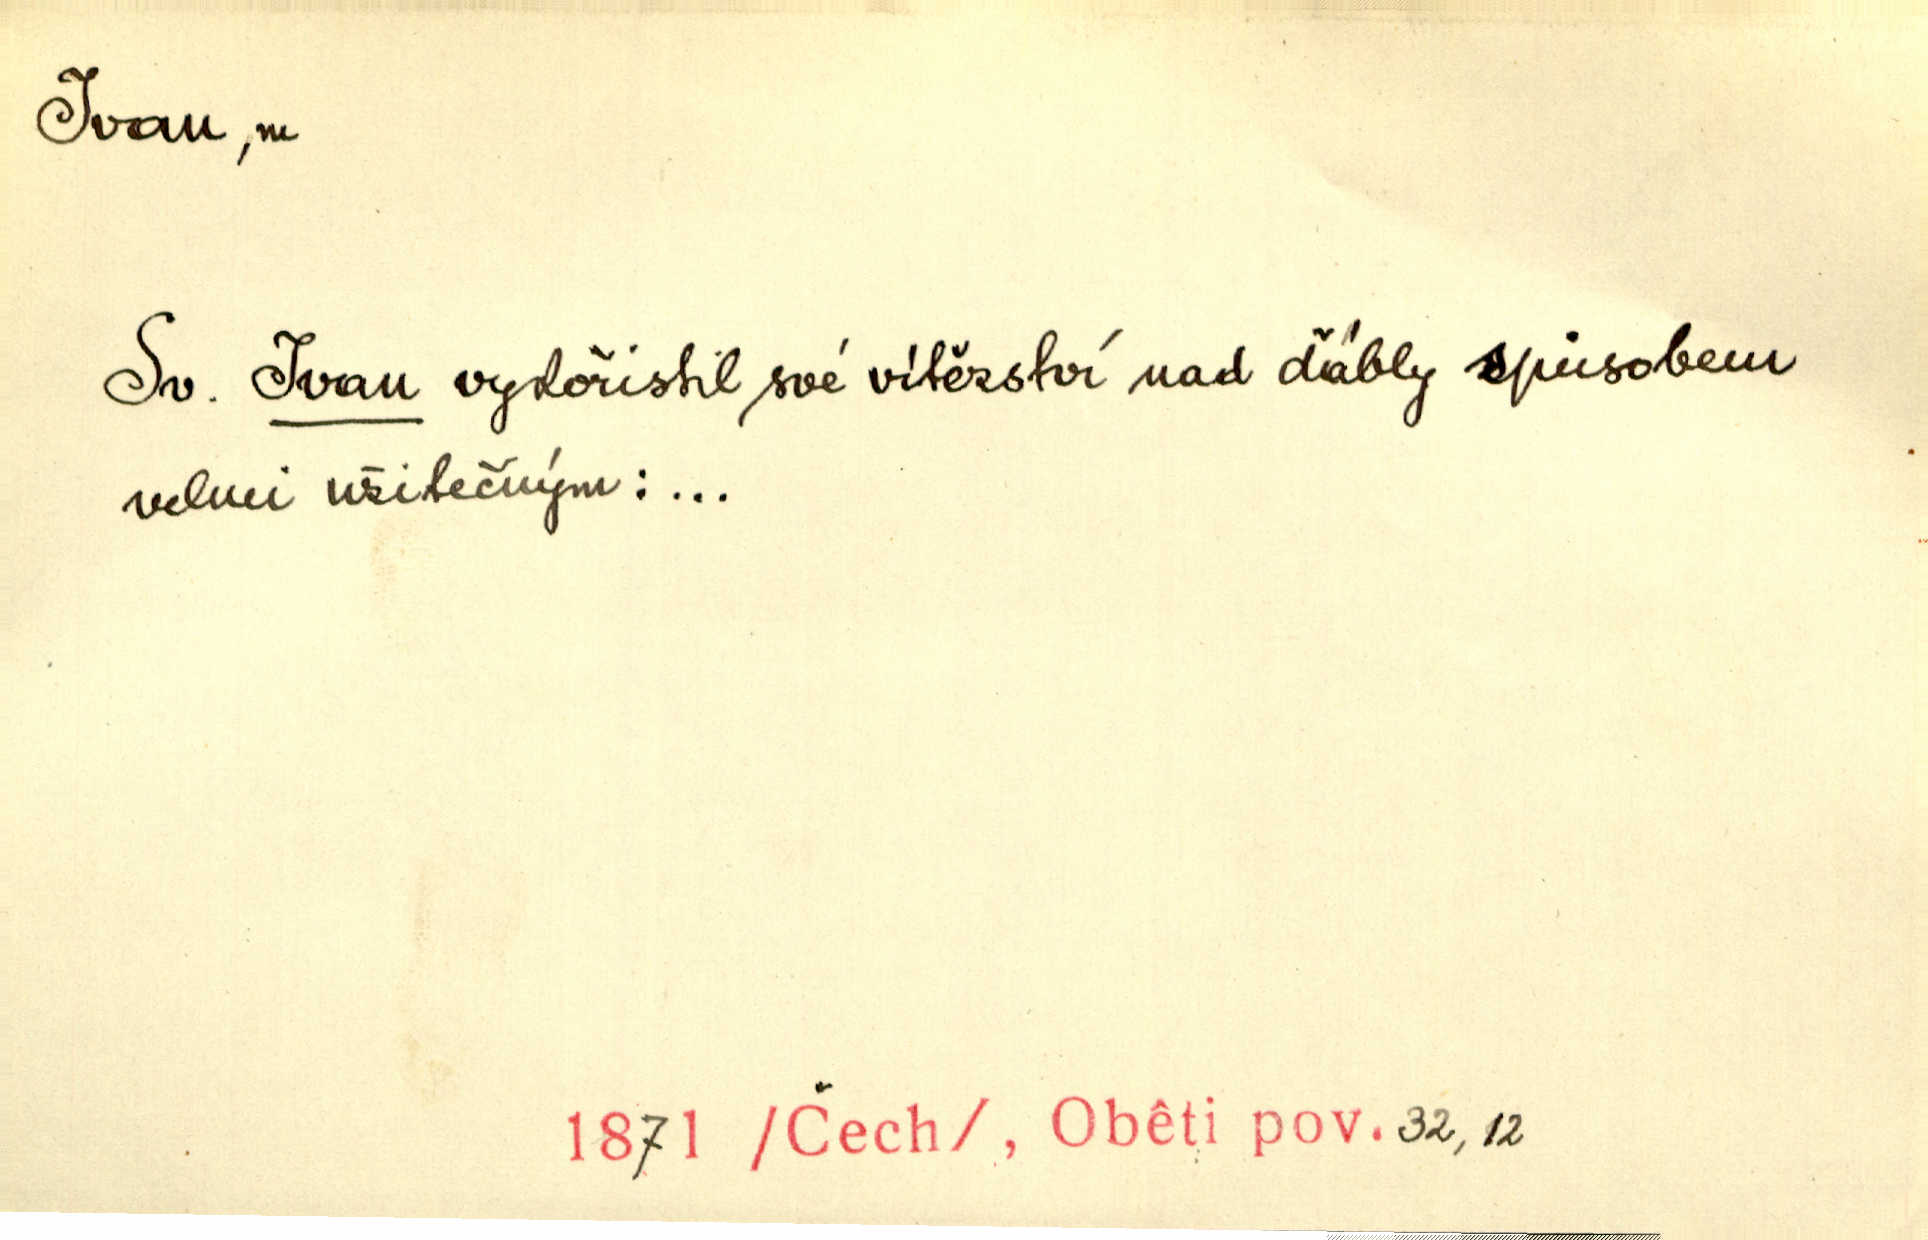 Ivan, m
Sv. Ivan vykořistil své vítězství nad ďábly spůsobem
velmi užitečným: ...
1871 /Čech/, Oběti pov. 32, 12